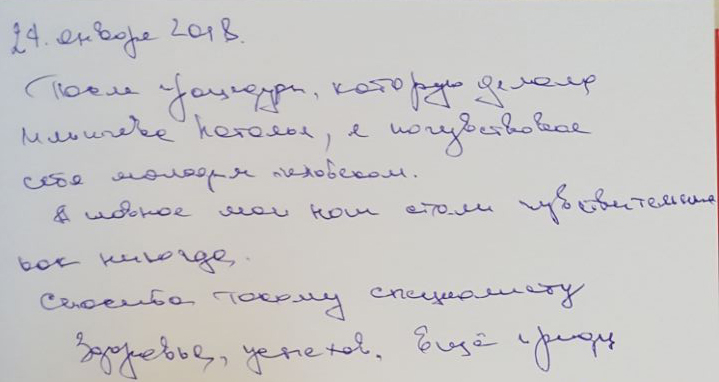 24. января 2018.
После процедуры, которую делала
Наталья, я почувствовал
себя молодым человеком.
главное мои ноги стали чувствительны
как никогда.
Спасибо такому специалисту
Здоровья, успехов. Ещё приду